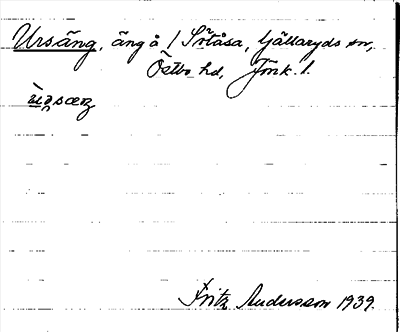 Ursäng, äng å / Sötåsa, Gällaryds sn,
Östbo hd, Jönk. l.
Fritz Andersson 1939.